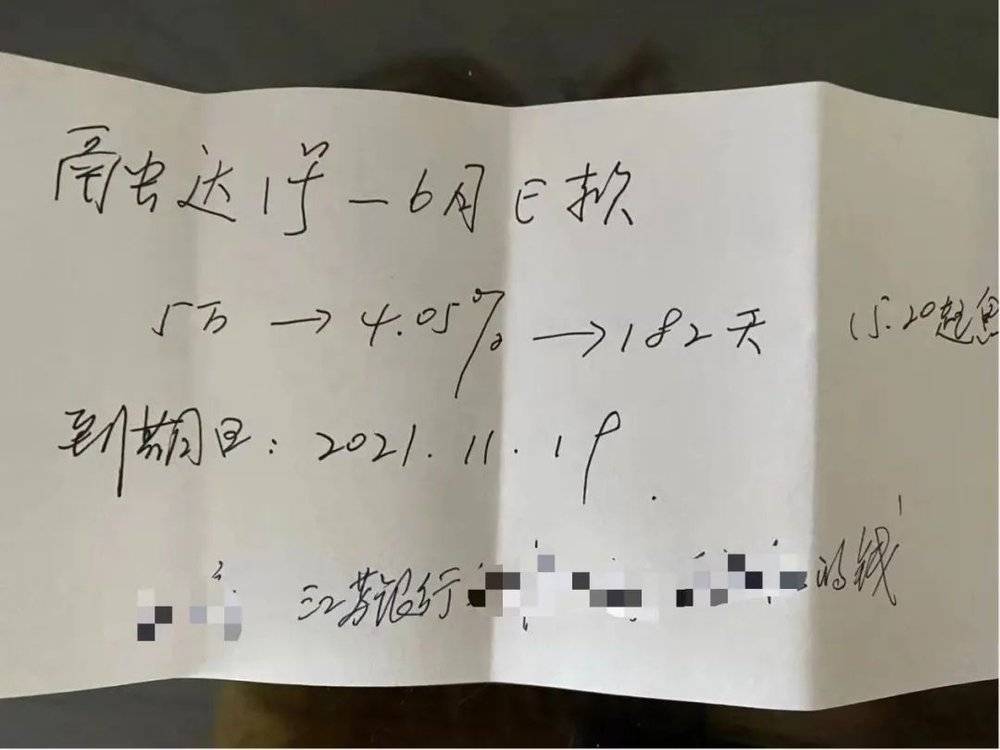 融达1号—6月E款
5万→4.05%→182天 (5.20起息
到期日: 2021.11.19.
江苏银行 的钱